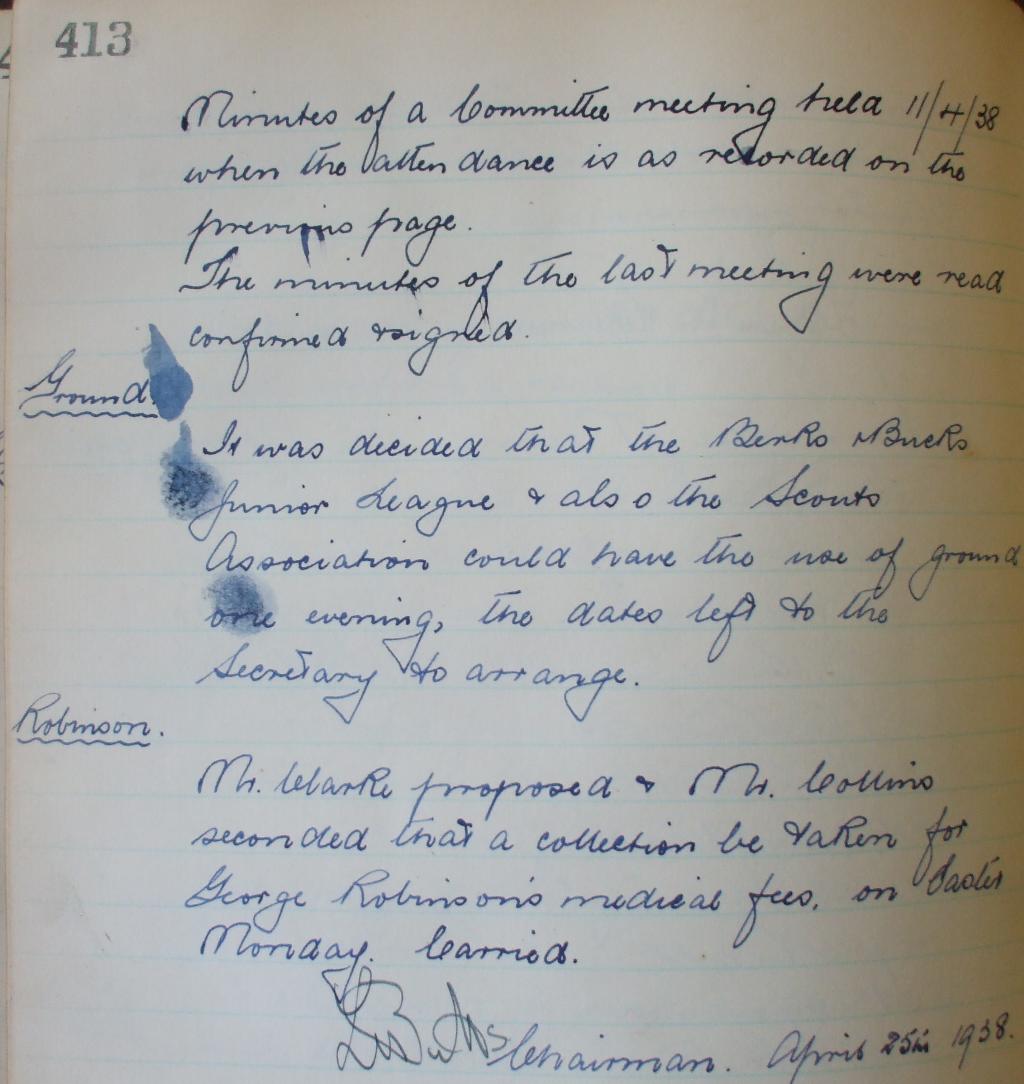 413
Minutes of a Committee meeting held 11/4/38
when the attendance is as recorded on the
previous page.
The minutes of the last meeting were read
confirmed & signed.
Ground.
It was decided that the Berks & Bucks
Junior League & also the Scouts
Association could have the use of ground
one evening, the dates left to the
Secretary to arrange.
Robinson.
Mr. Clarke proposed & Mr. Collins
seconded that a collection be taken for
George Robinson's medical fees, on Easter
Monday. Carried.
Chairman. April 25th 1938.